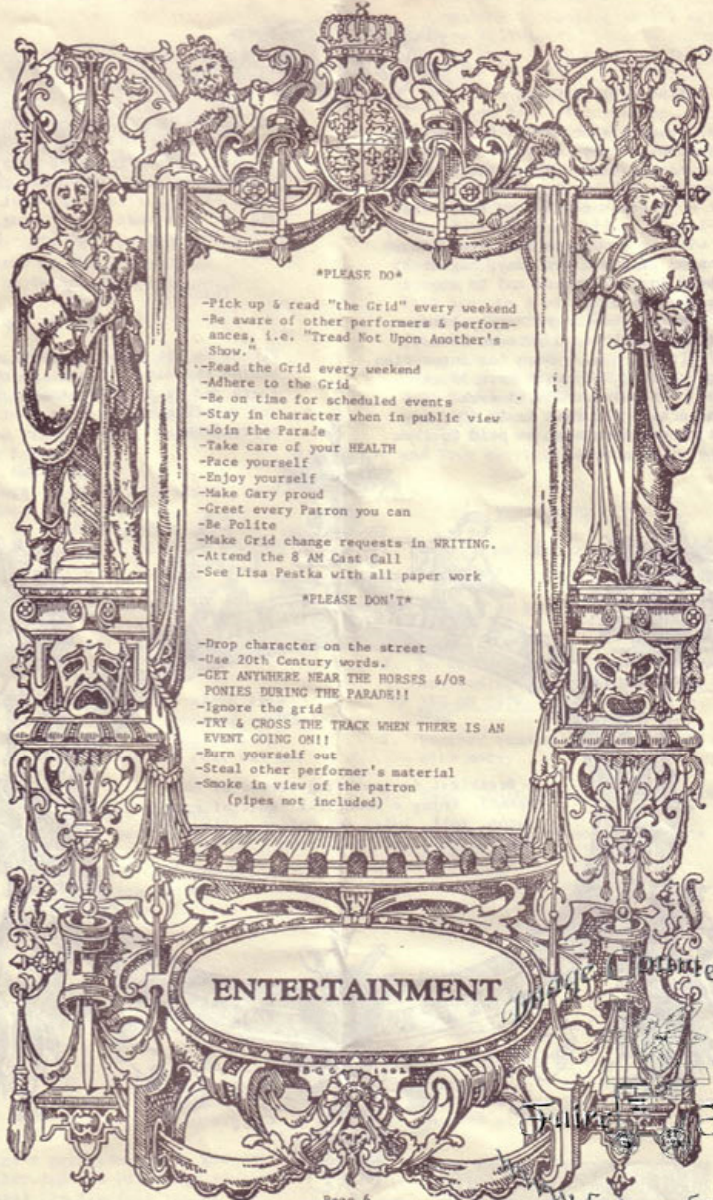 *PLEASE DO*
-Pick up & read "the Grid" every weekend
-Be aware of other performers & perform-
ances, i.e. "Tread Not Upon Another's
Show."
-Read the Grid every weekend
-Adhere to the Grid
-Be on time for scheduled events
-Stay in character when in public view
-Join the Parade
-Take care of your HEALTH
-Pace yourself
-Enjoy yourself
-Make Gary proud
-Greet every Patron you can
-Be Polite
-Make Grid change requests in WRITING.
-Attend the 8 AM Cast Call
-See Lisa Pestka with all paper work
*PLEASE DON'T*
-Drop character on the street
-Use 20th Century words.
-GET ANYWHERE NEAR THE HORSES &/OR
PONIES DURING THE PARADE!!
-Ignore the grid
-TRY & CROSS THE TRACK WHEN THERE IS AN
EVENT GOING ON!!
-Burn yourself out
-Steal other performer's material
-Smoke in view of the patron
(pipes not included)
ENTERTAINMENT
Image
Page 6